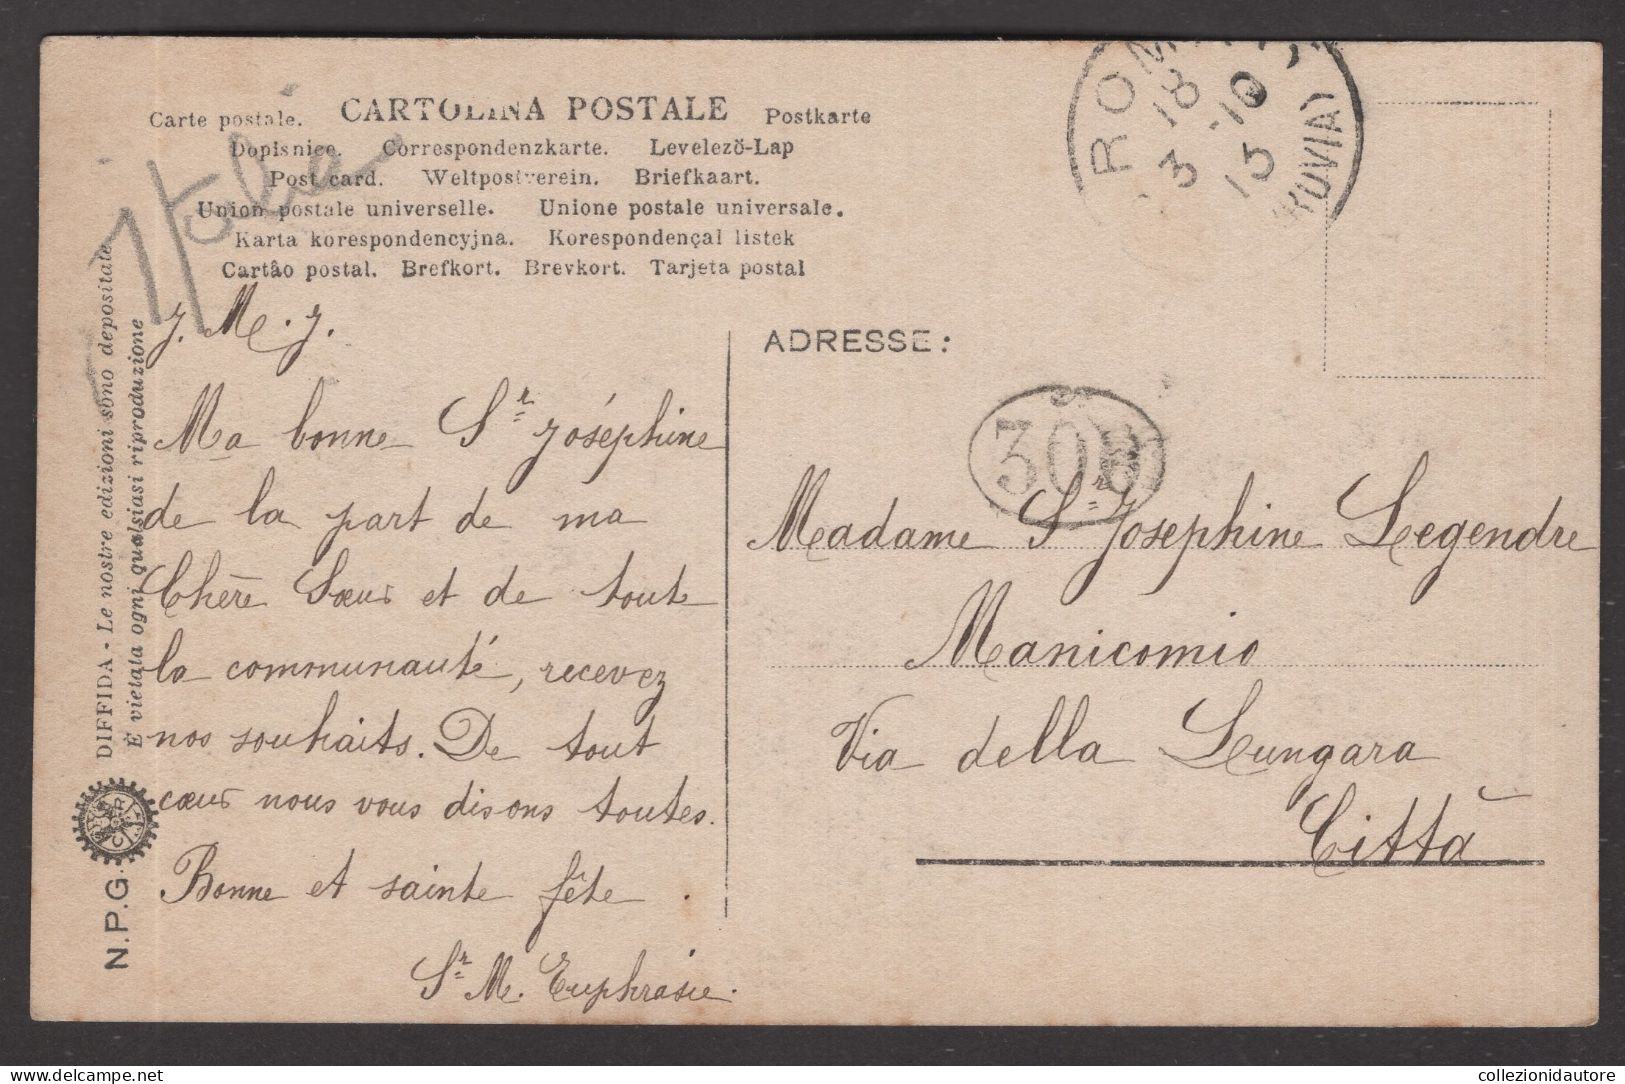 Carte postale. CARTOLINA POSTALE Postkarte
Dopisnice. Correspondenzkarte. Levelezö-Lap
Post card. Weltpostverein. Briefkaart.
Union postale universelle. Unione postale universale.
Karta korespondencyjna. Korespondençal listek
Cartâo postal. Brefkort. Brevkort. Tarjeta postal
J. M. J.
Ma bonne Sr Joséphine
de la part de ma
Chère Sœur et de toute
la communauté, recevez
nos souhaits. De tout
cœur nous vous disons toutes.
Bonne et sainte fête.
Sr M. Euphrasie.
DIFFIDA - Le nostre edizioni sono depositate
È vietata ogni qualsiasi riproduzione
N.P.G.
ROMA
18
3 -10
15
ADRESSE:
308
Madame Sr Josephine Legendre
Manicomio
Via della Lungara
Città
delcampe.net
collezionidautore